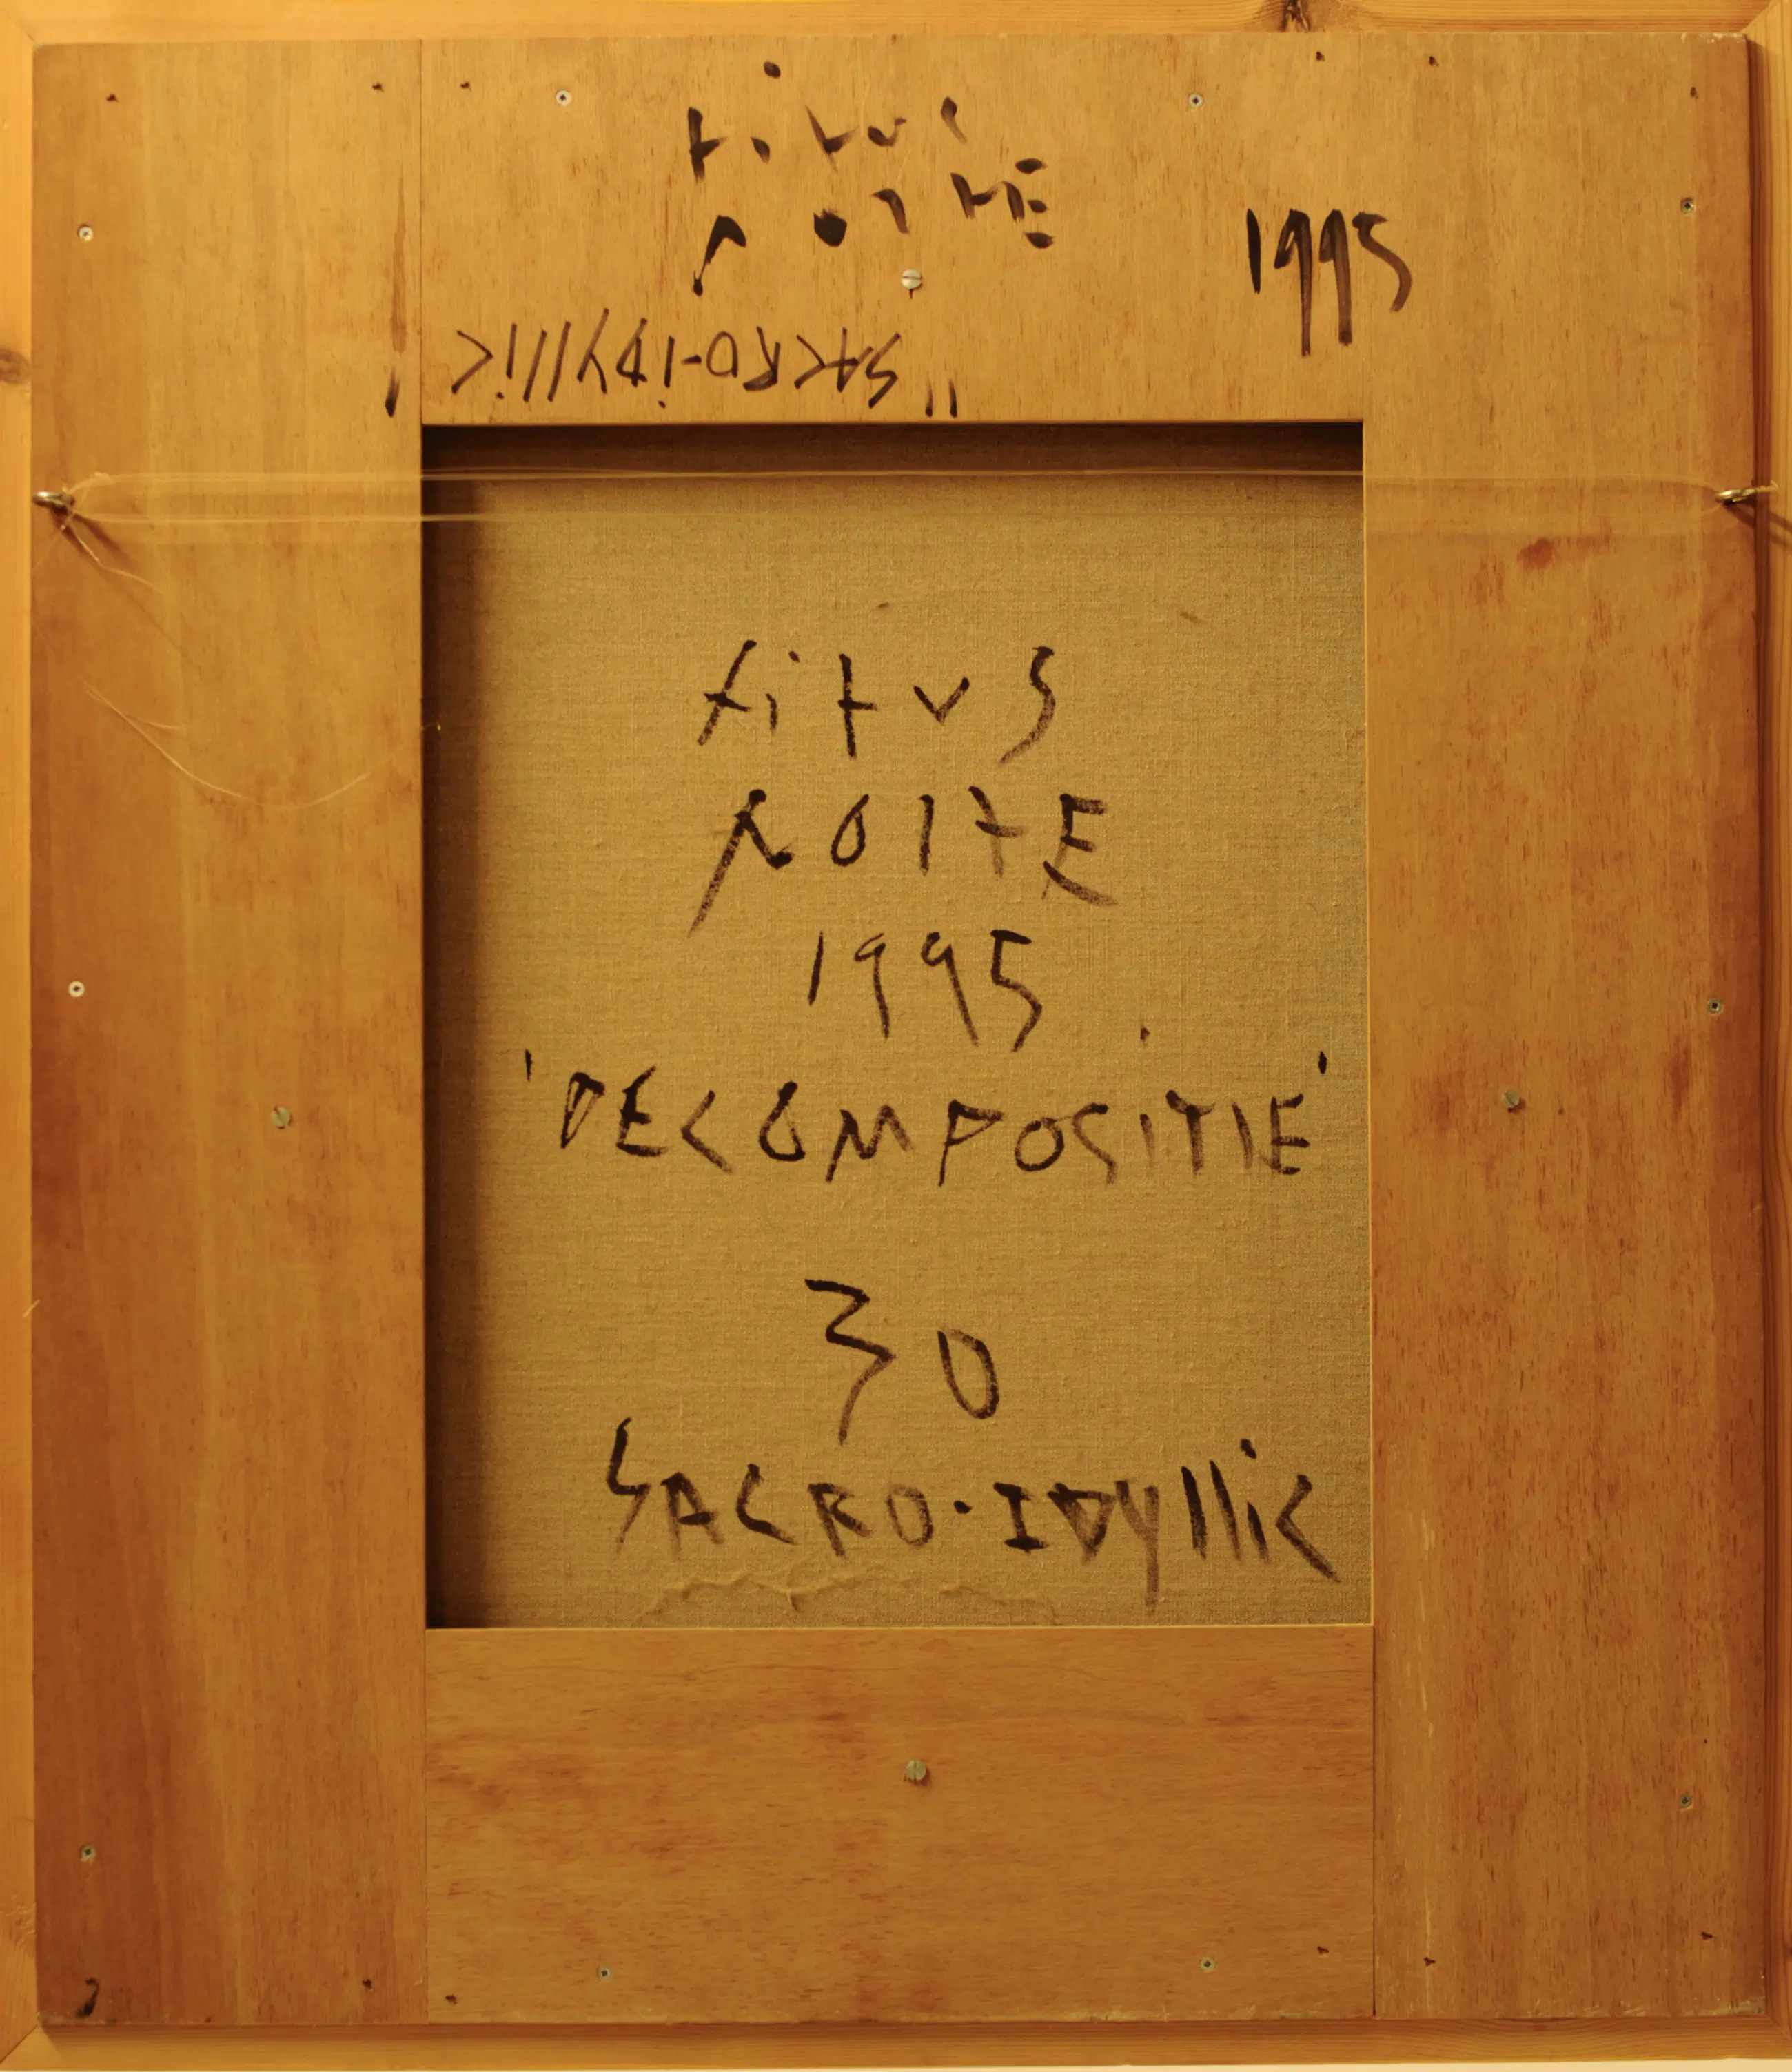 titus
NOlTE
1995
"SACRO-iDYlliC"
titvs
NOlTE
1995
'DECOMPOSITIE'
30
SACRO-IDYlliC